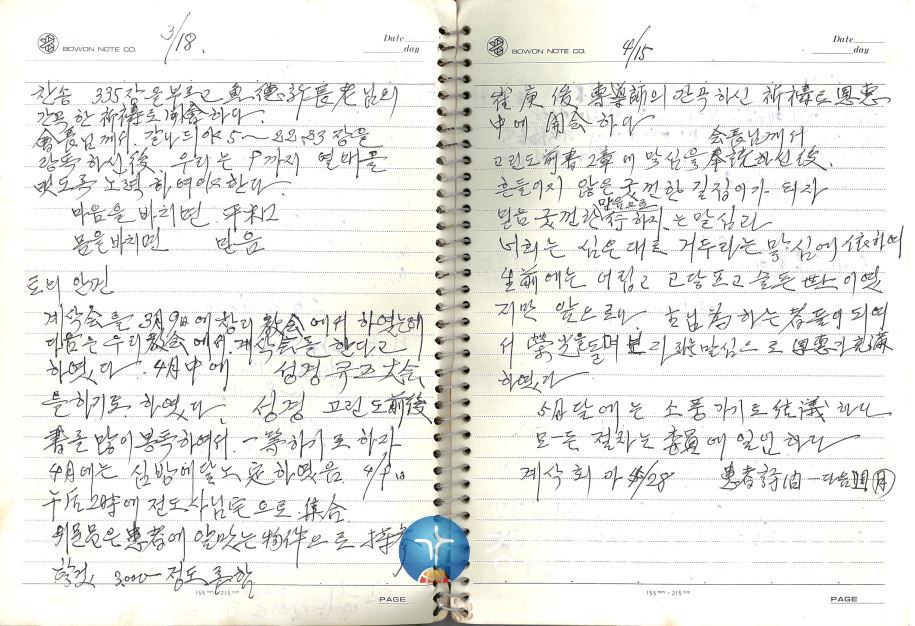 BOWON NOTE CO.
3/18.
Date
day
찬송 335장을 부르고 長老님의
간곡한 祈禱로 開会하다
会長님께서 갈라디아 5~ 장을
랑독하신後 우리는 9까지 열매를
맺도록 노력하여야한다
마음을 바치면 平和
몸을 바치면 믿음
토의 안건
계삭会를 3月9日에 창리 敎会에서 하였는데
다음은 우리 敎会에서 계삭会를 한다고
하였다. 4月中에 성경 퀴즈大会
를 하기로 하였다 성경 고린도前後
書를 많이 봉독하여서 一等하기로 하자
4月에는 심방에달로 定하였음 4/9日
午后2時에 전도사님宅으로 集合
위문품은 患者에 알맞는 物件으로 持參
할것 3,000 정도
155mm × 215mm
PAGE
BOWON NOTE CO.
4/15
Date
day
崔庚俊 專導師의 간곡하신 祈禱로 恩惠
中에 開会하다
会長님께서
고린도前書 2章에 말심을 奉讀하신後.
흔들이지 않은 굿껀한 길점이가 되자
믿음 굿껀한 믿음으로 行하자 는 말심과
너희는 심은대로 거두리라는 말심에 依하여
生前에는 어렵고 고달프고 슬픈 였
지만 앞으로는 主님 為하는 者들이 되여
서 榮光을돌며 말심으로 恩惠가 充滿
하였다
5月달에는 소풍가기로 結議하다
모든 절차는 委員에 일임하다
계삭회 4/28 患者訪問 다음週 月
155mm × 215mm
PAGE